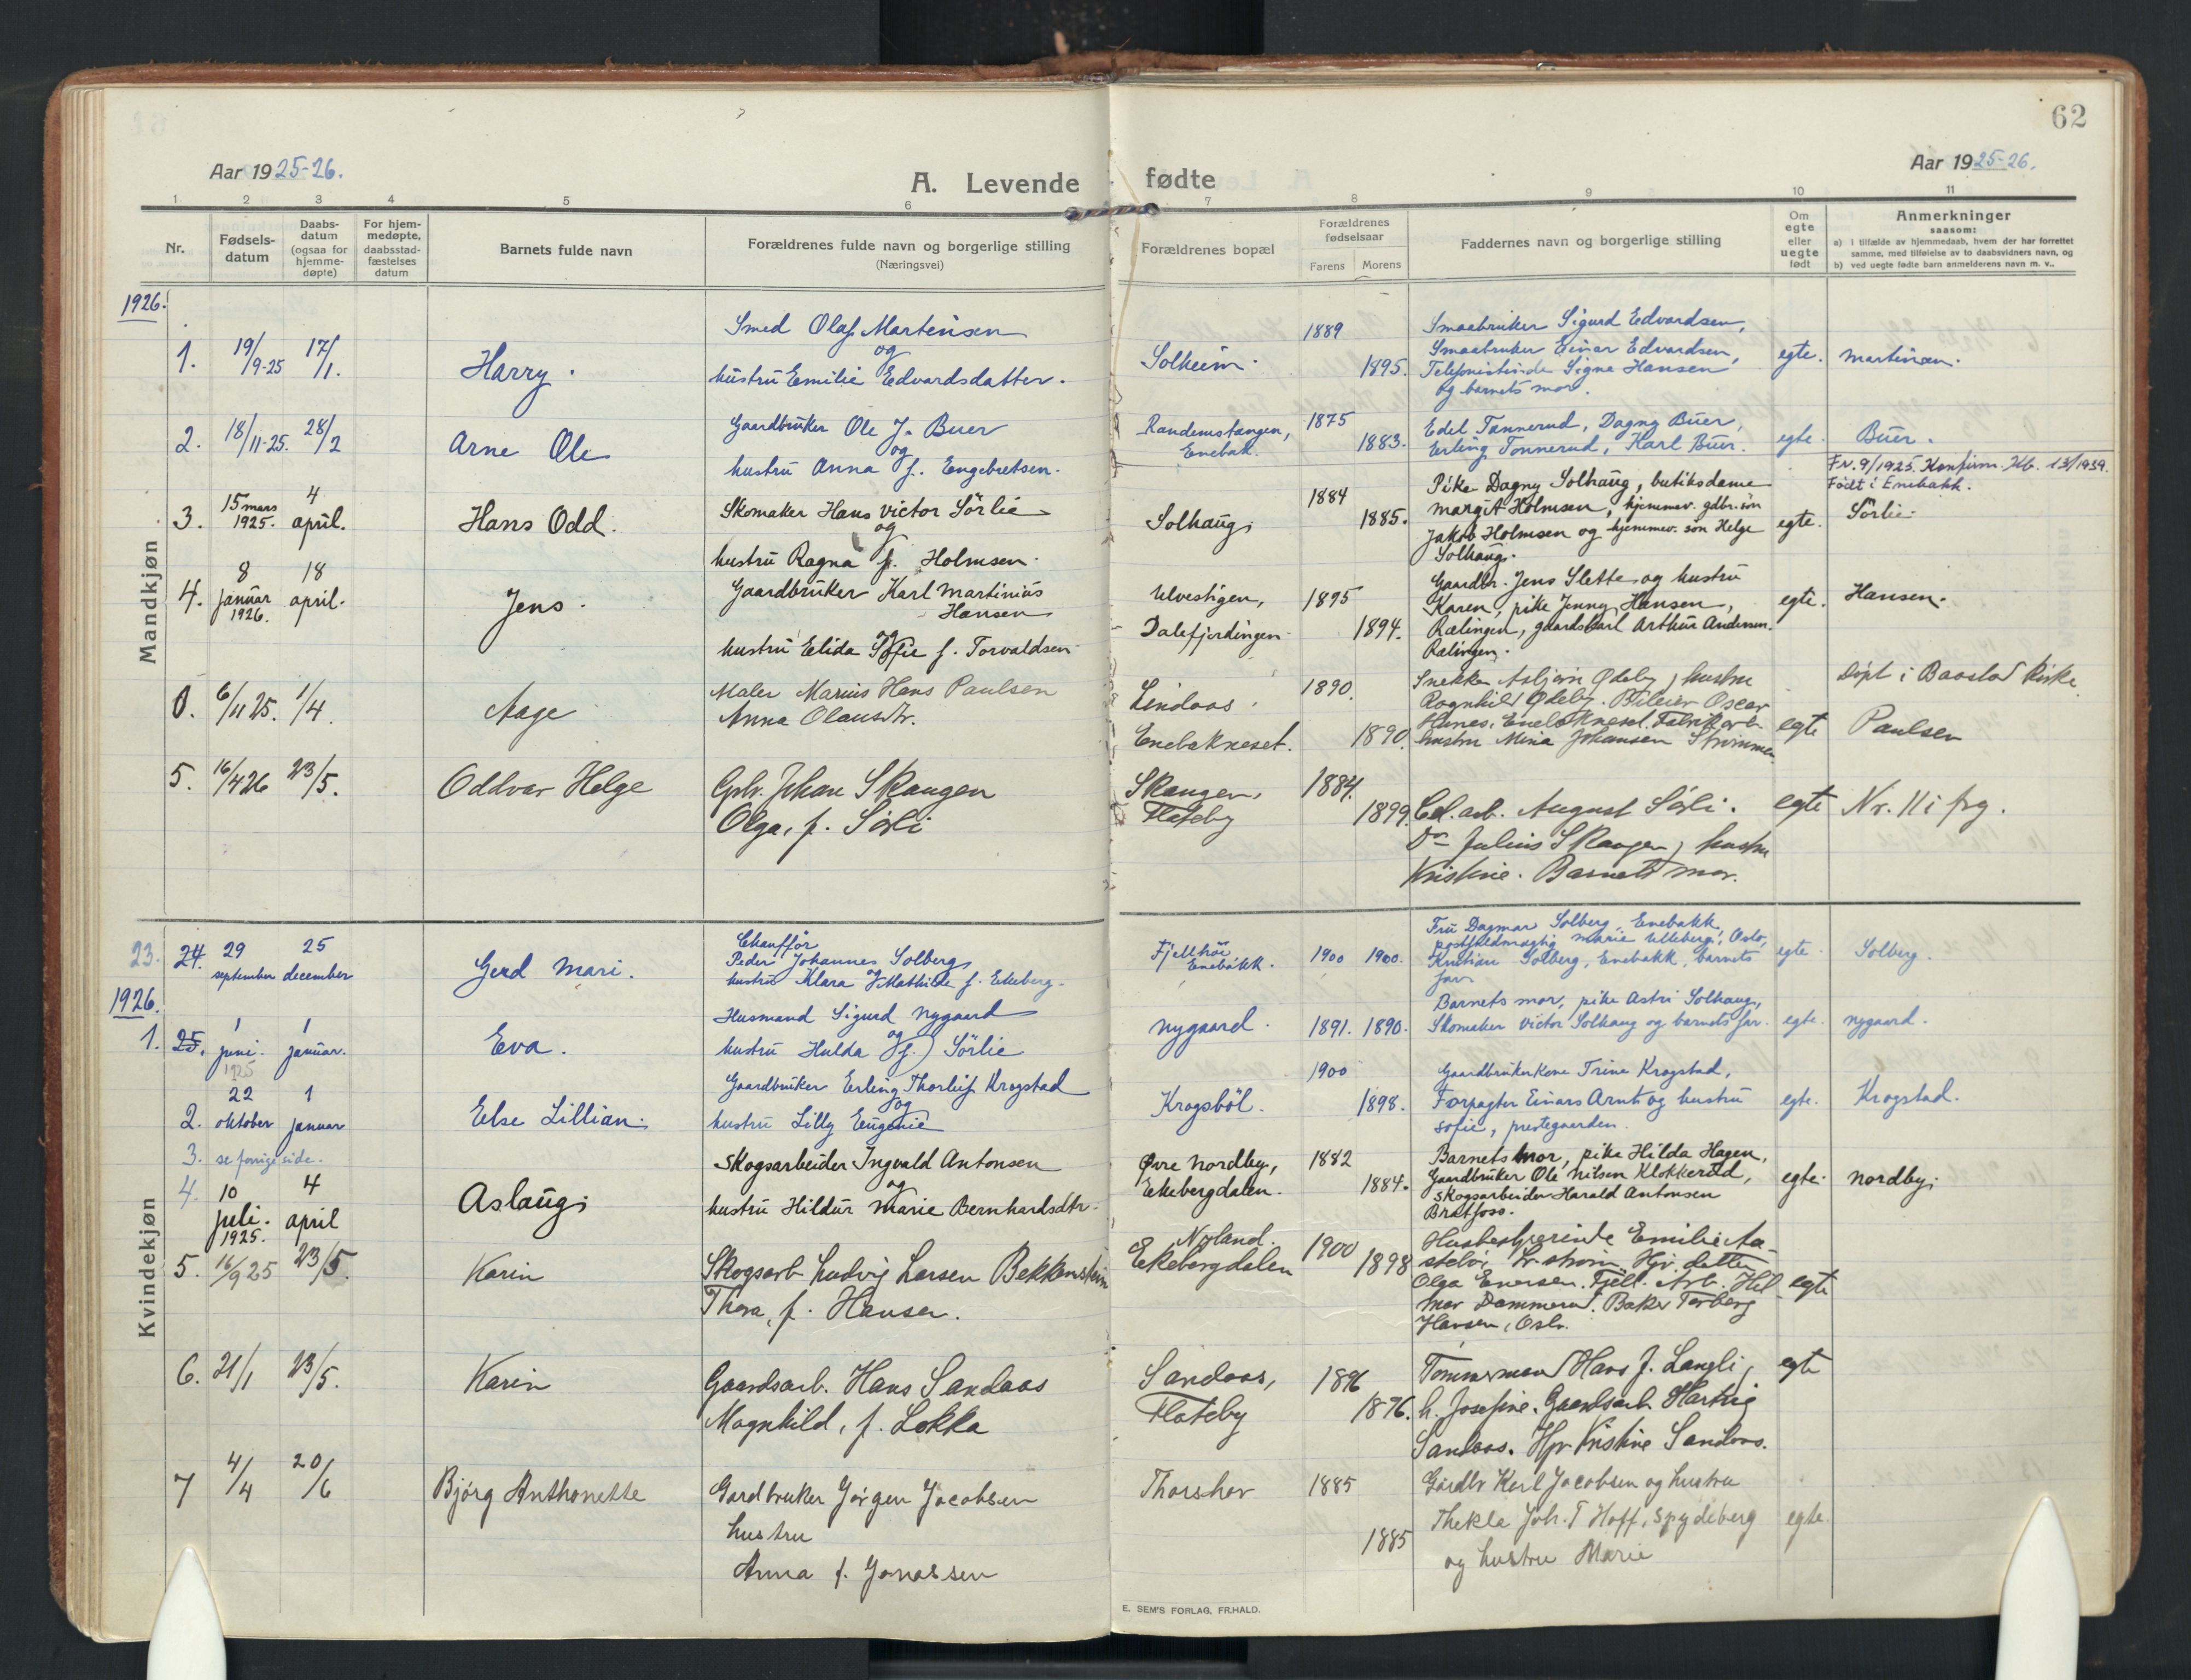 62
Aar 1925-26.
A. Levende fødte
Aar 1925-26.
1 2 3 4 5 6 7 8 9 10 11
Nr.
Fødsels-
datum
Daabs-
datum
(ogsaa for
hjemme-
døpte)
For hjem-
medøpte,
daabsstad-
fæstelses
datum
Barnets fulde navn
Forældrenes fulde navn og borgerlige stilling
(Næringsvei)
Forældrenes bopæl
Forældrenes
fødselsaar
Farens Morens
Faddernes navn og borgerlige stilling
Om
egte
eller
uegte
født
Anmerkninger
saasom:
a) i tilfælde av hjemmedaab, hvem der har forrettet
samme, med tilføielse av to daabsvidners navn, og
b) ved uegte fødte barn anmelderens navn m. v..
Mandkjøn
1926.
1. 19/9-25 17/1. Harry.
Smed Olaf Martinsen
og
hustru Emilie Edvardsdatter.
Solheim.
1889
1895.
Smaabruker Sigurd Edvardsen,
Smaabruker Einar Edvardsen,
Telefonistinde Signe Hansen
og barnets mor.
egte. Martinsen.
2. 18/11-25. 28/2 Arne Ole
Gaardbruker Ole J. Buer
og
hustru Anna f. Engebretsen.
Randemstangen,
Enebak.
1875
1883.
Edel Tonnerud, Dagny Buer,
Erling Tonnerud, Karl Buer.
egte. Buer.
Fr. 9/1925. Konfirm. Kb. 13/1939.
Født i Enebakk.
3. 15 mars 1925. 4 april. Hans Odd.
Skomaker Hans Victor Sörlie
og
hustru Ragna f. Holmsen.
Solhaug.
1884
1885.
Pike Dagny Solhaug, butiksdame
Margit Holmsen, hjemmev. gdbr. søn
Jakob Holmsen og hjemmev. søn Helge
Solhaug.
egte. Sörlie.
4. 8 januar 1926. 18 april. Jens.
Gaardbruker Karl Martinius
Hansen
og
hustru Elida Sofie f. Torvaldsen.
Ulvestigen,
Dalefjerdingen.
1895
1894.
Gaardbr. Jens Slette og hustru
Karen, pike Jenny Hansen,
Rælingen, gaardskarl Arthur Andersen.
Rælingen.
egte. Hansen.
0. 6/11 25. 1/4. Aage
Maler Marius Hans Paulsen
Anna Olausdtr.
Lindaas.
Enebakneset.
1890.
1890.
Snekker Asbjørn Ødeby, hustru
Ragnhild Ødeby. Bileier Oscar
Enebakneset. Fabrikarb.
hustru Mina Johansen Strømmen
egte
Døpt i Baastad kirke
Paulsen
5. 16/4 26 23/5. Oddvar Helge
Gbr. Johan Skaugen
Olga, f. Sørli
Skaugen,
Flateby
1884.
1899.
Cel.arb. August Sørli.
Do Julius Skaugen, hustru
Kristine. Barnets mor.
egte Nr. 11 i frg.
Kvindekjøn
23. 24. 29 september 25 december Gerd Mari.
Chauffør
Peder Johannes Solberg
og
hustru Klara Mathilde f. Ekeberg.
Fjellhöi
Enebakk.
1900 1900.
Fru Dagmar Solberg, Enebakk,
postfuldmægtig Marie Ulleberg, Oslo,
Kristian Solberg, Enebakk, barnets
far
egte. Solberg.
1926.
1. 25. 1 juni. 1925 1 januar. Eva.
Husmand Sigurd Nygaard
og
hustru Hulda (f.) Sörlie
Nygaard.
1891. 1890.
Barnets mor, pike Astri Solhaug,
Skomaker Victor Solhaug og barnets far.
egte. Nygaard.
2. 22 oktober 1 januar Else Lillian.
Gaardbruker Erling Thorleif Krogstad
og
hustru Lilly Eugenie
Krogsböl.
1900
1898.
Gaardbrukerkone Trine Krogstad,
Forpagter Einars Arnt og hustru
Sofie, prestegaarden.
egte. Krogstad.
3. se forrige side.
4. 10 juli. 1925. 4 april Aslaug.
Skogsarbeider Ingvald Antonsen
og
hustru Hildur Marie Bernhardsdtr.
Øvre Nordby,
Ekebergdalen.
1882
1884.
Barnets mor, pike Hilda Hagen,
Gaardbruker Ole Nilsen Klokkerud,
Skogsarbeider Harald Antonsen
Bratfoss.
egte. Nordby.
5. 16/9 25 23/5. Karin
Skogsarb. Ludvig Larsen Bekkensteen
Thora, f. Hansen.
Nyland.
Ekebergdalen
1900
1898
Husbestyrerinde Emilie
Hjv. datter
Olga Enersen. Fjell. Arb. Hil-
mar Dammerud. Baker Torberg
Hansen, Oslo.
egte
6. 21/1 23/5. Karin
Gaardsarb. Hans Sandaas
Magnhild, f. Løkka
Sandaas,
Flateby
1896
1876.
Tømmermand Hans J. Langli,
h. Josefine. Gaardsarb. Hartvig
Sandaas. Hjv Kristine Sandaas.
egte
7 4/4 20/6 Bjørg Anthonette
Gardbruker Jørgen Jacobsen
hustru
Anna f. Jonassen
Thorshov
1885
1885
Gardbr Karl Jacobsen og hustru
Thekla Joh. T Hoff, Spydeberg
og hustru Marie
egte.
E. SEM'S FORLAG, FR.HALD.